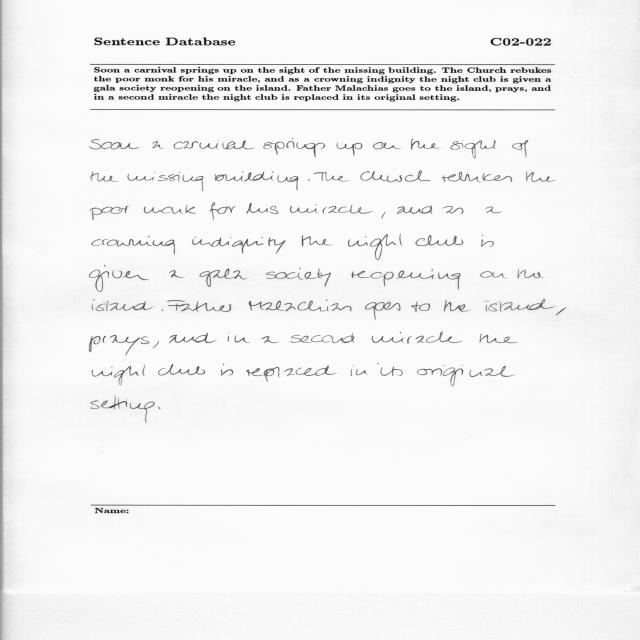 Sentence Database C02-022
Soon a carnival springs up on the sight of the missing building. The Church rebukes
the poor monk for his miracle, and as a crowning indignity the night club is given a
gala society reopening on the island. Father Malachias goes to the island, prays, and
in a second miracle the night club is replaced in its original setting.
Soon a carnival springs up on the sight of
the missing building. The Church rebukes the
poor monk for his miracle, and as a
crowning indignity the night club is
given a gala society reopening on the
island. Father Malachias goes to the island,
prays, and in a second miracle the
night club is replaced in its original
setting.
Name: